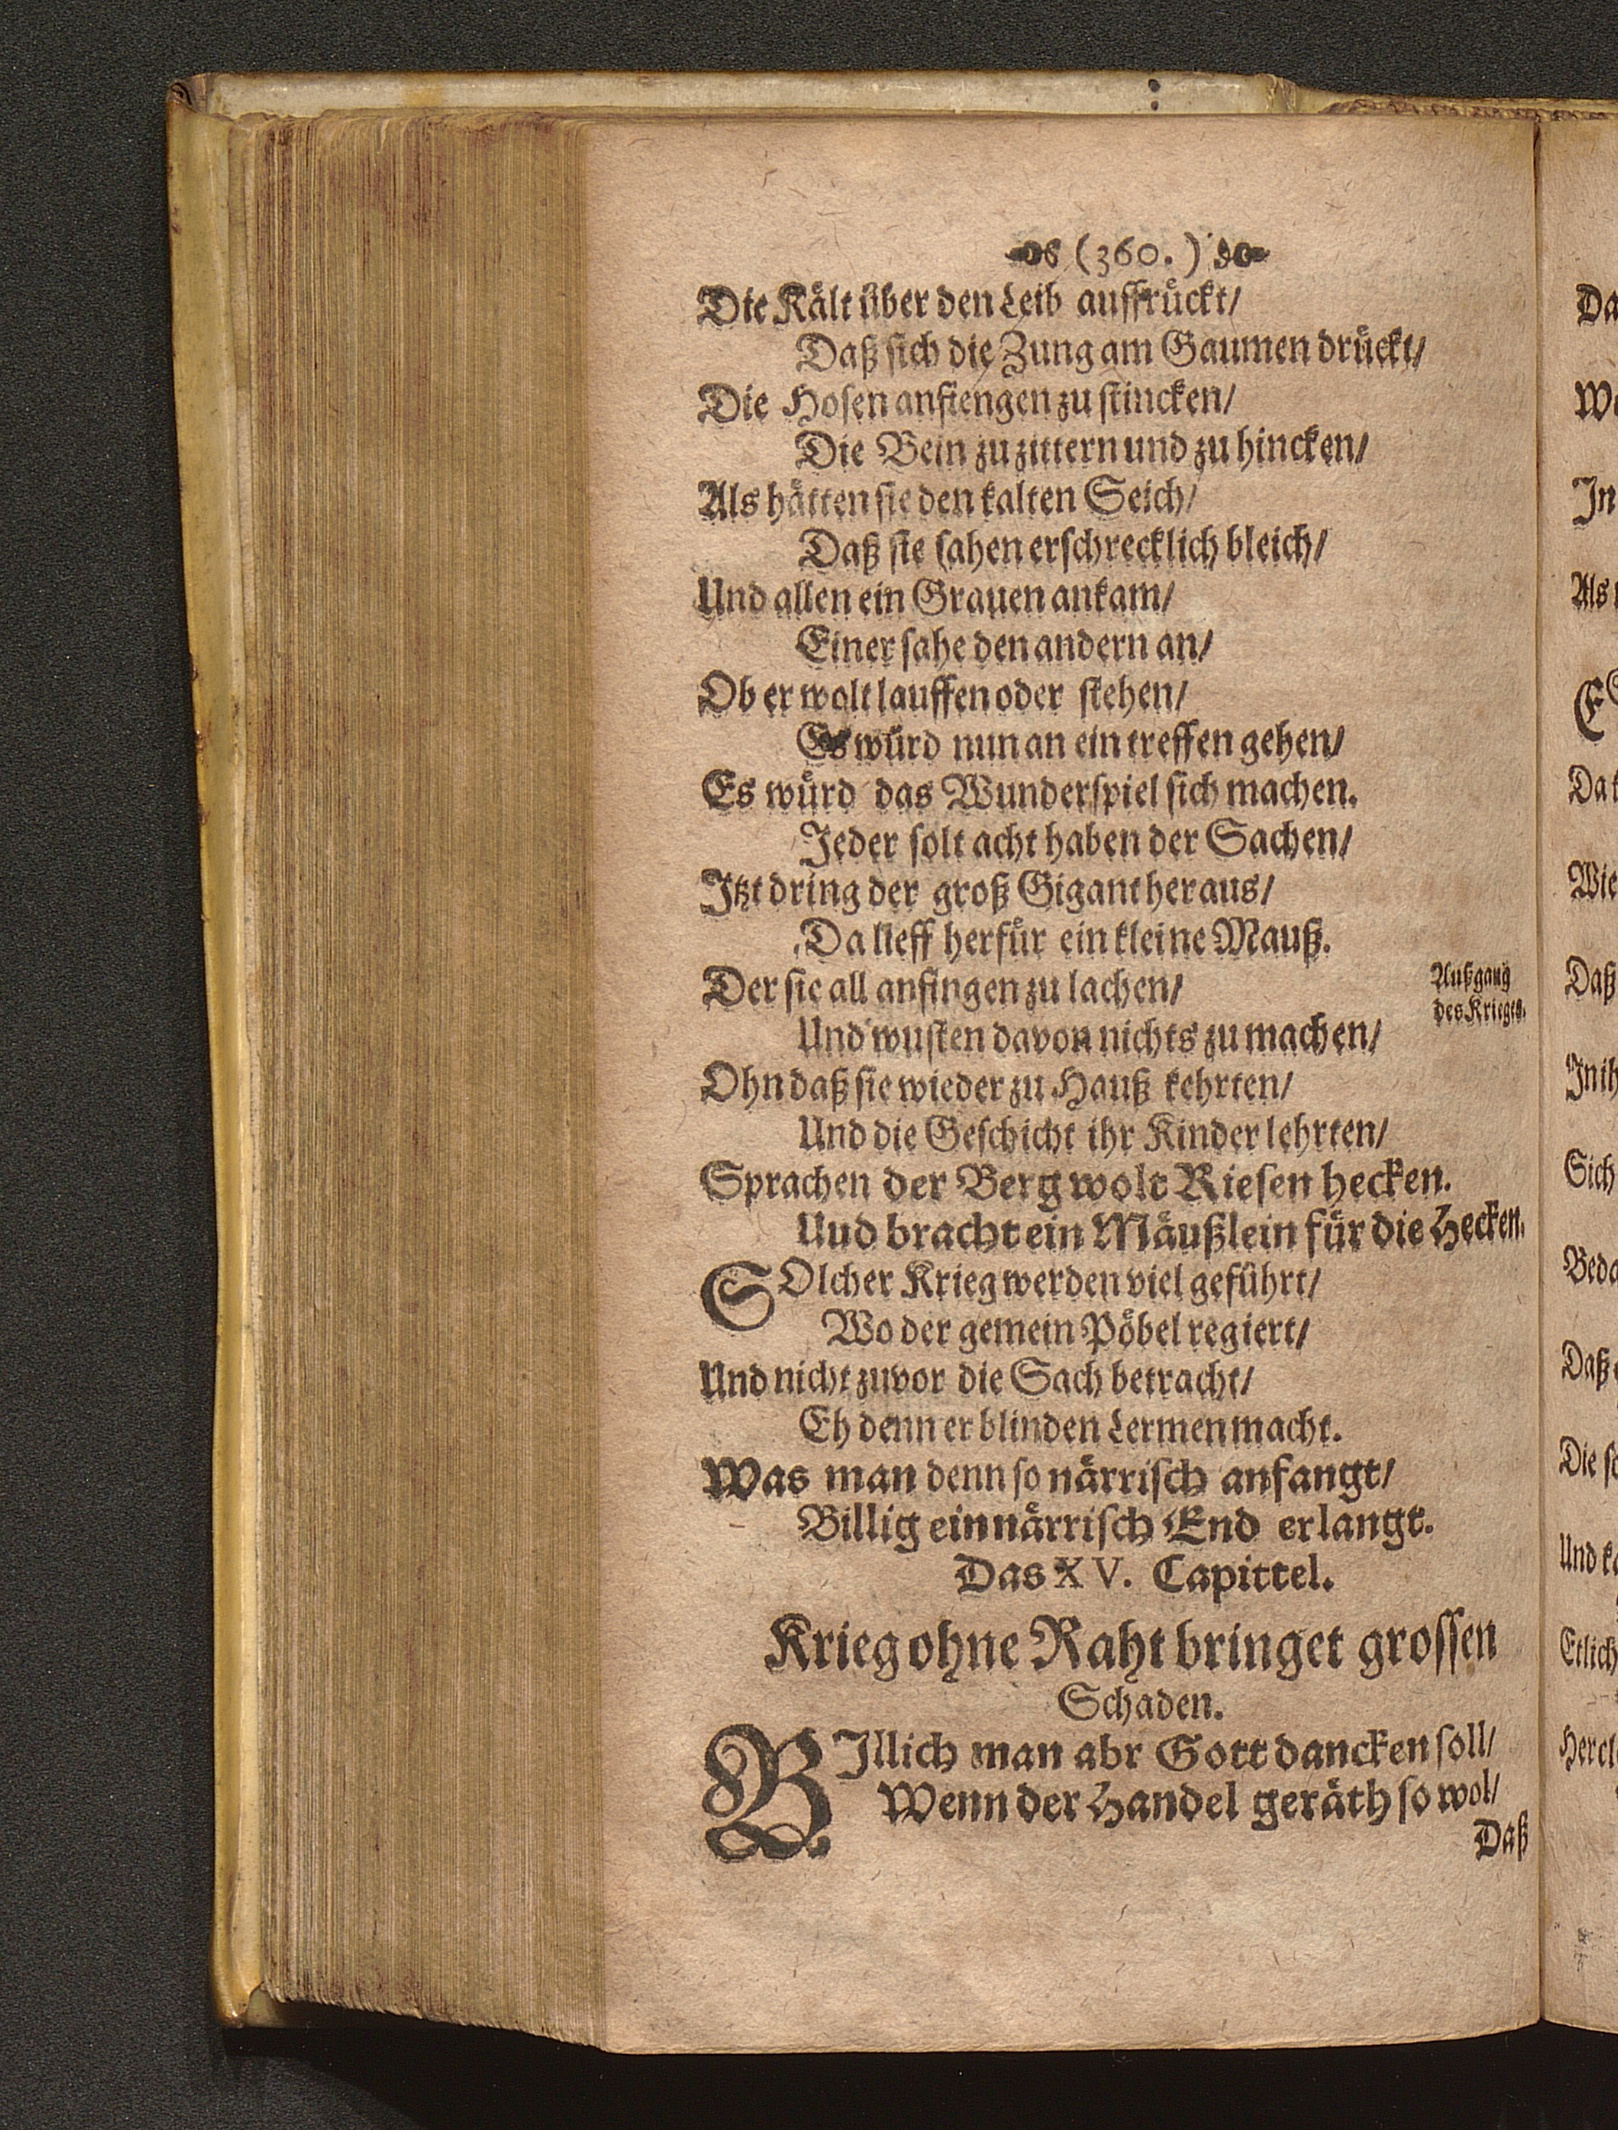 (360.)
Die Kält über den Leib auffrückt/
Daß sich die Zung am Gaumen drückt/
Die Hosen anfiengen zu stincken/
Die Bein zu zittern und zu hincken/
Als hätten sie den kalten Seich/
Daß sie sahen erschrecklich bleich/
Und allen ein Grauen ankam/
Einer sahe den andern an/
Ob er wolt lauffen oder stehen/
Es würd nun an ein treffen gehen/
Es würd das Wunderspiel sich machen.
Jeder solt acht haben der Sachen/
Jtzt dring der groß Gigant heraus/
Da lieff herfür ein kleine Mauß.
Der sie all anfingen zu lachen/
Außgang
des Krieges.
Und wusten davon nichts zu machen/
Ohn daß sie wieder zu Hauß kehrten/
Und die Geschicht ihr Kinder lehrten/
Sprachen der Berg wolt Riesen hecken.
Uud bracht ein Mäußlein für die Hecken.
SOlcher Krieg werden viel geführt/
Wo der gemein Pöbel regiert/
Und nicht zuvor die Sach betracht/
Eh denn er blinden Lermen macht.
Was man denn so närrisch anfangt/
Billig ein närrisch End erlangt.
Das XV. Capittel.
Krieg ohne Raht bringet grossen
Schaden.
BJllich man abr Gott dancken soll/
Wenn der Handel geräth so wol/
Daß
Da
Jn
Als
Da
Wie
Daß
Jn ih
Sich
Daß
Die
Und
Etlich